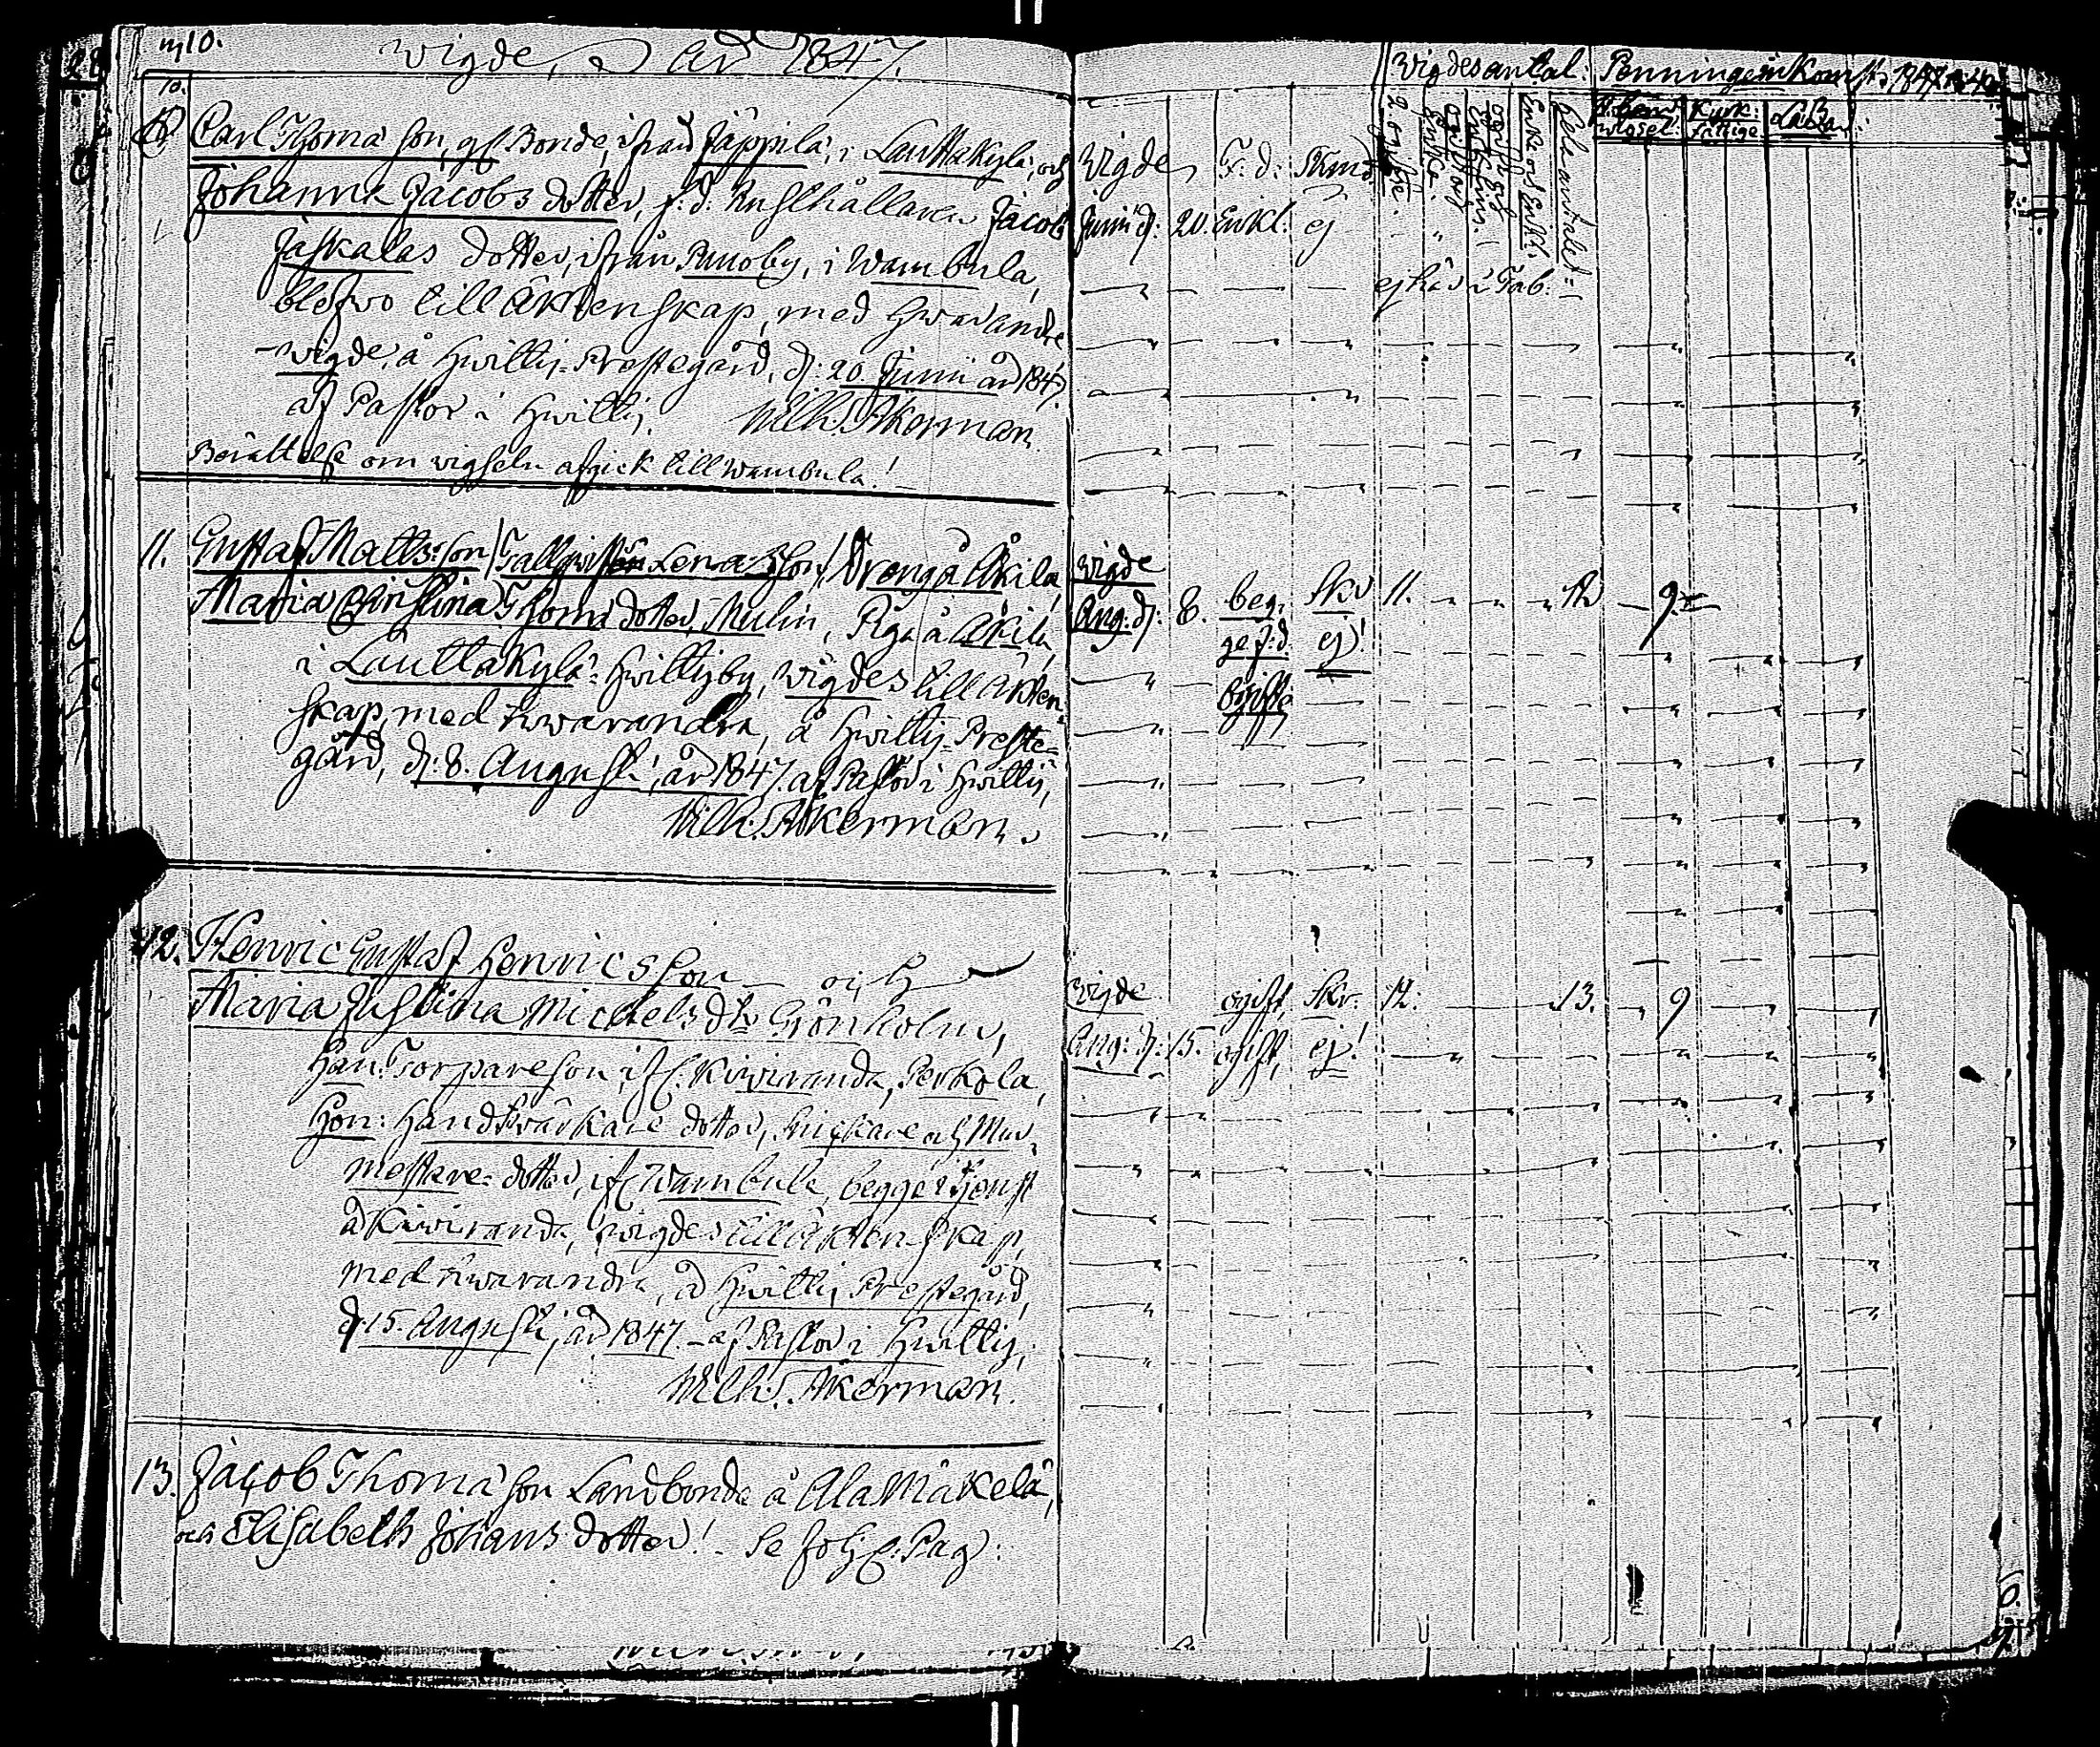 wigde, år 1847.
10.
Carl Thomä son, gl Bonde, ifrån Jäppilä, i Lauttakylä, och
Johanna Jacobs dotter, f. d. Jacob
Jaskalas dotter, ifrån Punoby, i Wambula,
blefwo till äktenskap, med hwarandra
wigde, å Hwittis Prestegård, d: 20 Junii år 1847
af Pastor i Hwittis. Wilh: Åkerman
Berättelse om wigseln afgick till Wambula!
11. Gustaf Matts son / Lena son / Dräng å Äkilä,
Maria Christina Thomä dotter, Mulin, Piga å Äkilä,
i Lauttakylä Hwittisby, wigdes till äkten-
skap, med hwarandra, å Hwittis Preste-
gård, d: 8. Augusti, år 1847. af Pastor i Hwittis,
Wilh: Åkerman.
12. Henric Gustaf Henricsson och
Maria Justina Michels dtr Grönholm,
Han: Torpareson, if. Kiwiranda, Perkola,
Hon: Handtwärkare dotter, Snickare och Mur-
mestare dotter, if. Wambula, begge i tjenst
å Kiwiranda, wigdes till äktenskap,
med hwarandra, å Hwittis Prestegård,
d. 15. Augusti, år 1847. af Pastor i Hwittis,
Wilh: Åkerman.
13. Jacob Thomä son Landbonde å Ala Mäkelä,
och Elisabeth Johans dotter! Se följ. Pag:
Wigdes antal: Penninge inkomst,
Kyrk: fattige
Alla antalet:
wigde, F: d: Enkl. ej
Junii d: 20.
ej här i Tab:
wigde
Aug: d: 8. beg. skr 11. 12 9
ge f: d. ej!
ogifte
wigde ogift, skr. 12. 13. 9
Aug: d: 15. ogift, ej!